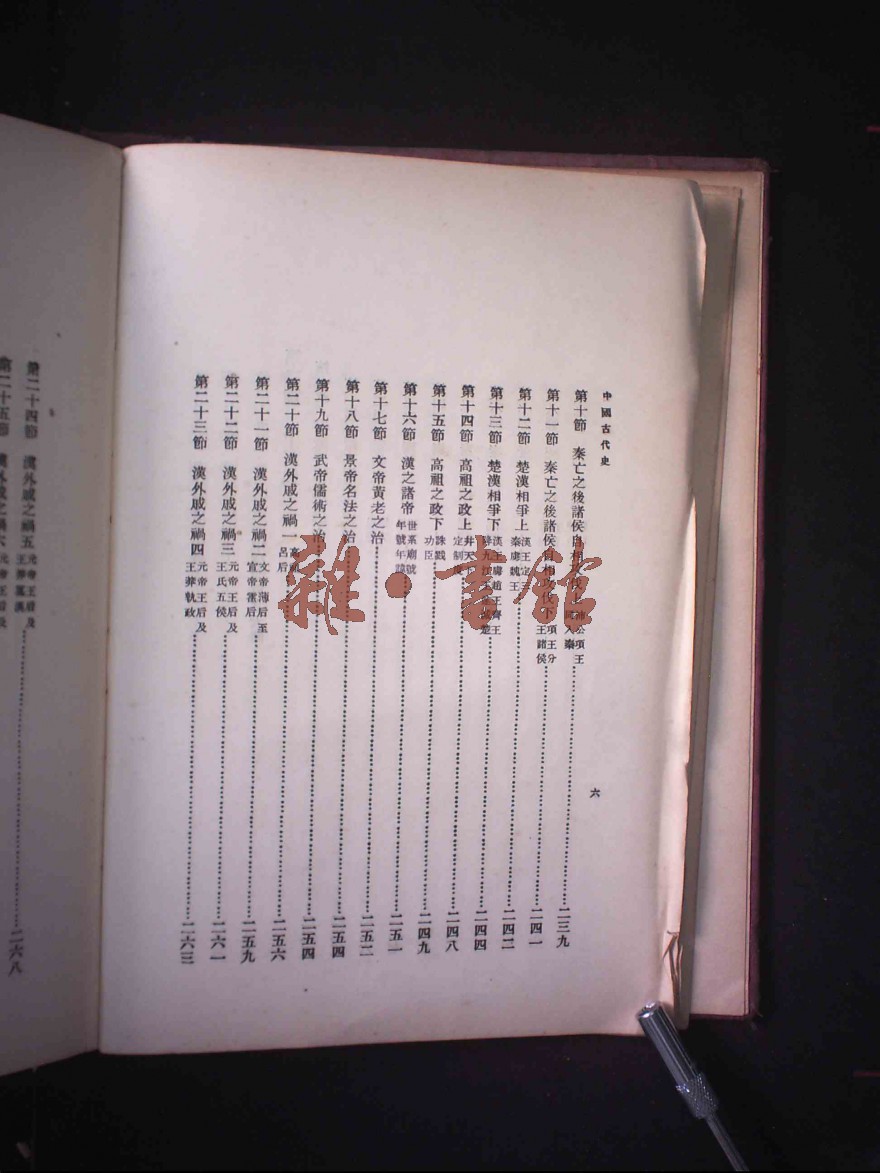 中國古代史
六
第十節 秦亡之後諸侯自相攻伐上 沛公項王入秦 二三九
第十一節 秦亡之後諸侯自相攻伐下 項王分王諸侯 二四一
第十二節 楚漢相爭上 漢王定三秦虜魏王 二四二
第十三節 楚漢相爭下 漢王 趙王齊王 楚 二四四
第十四節 高祖之政上 定制 二四八
第十五節 高祖之政下 誅戮功臣 二四九
第十六節 漢之諸帝 世系廟號年號年譜 二五一
第十七節 文帝黃老之治 二五二
第十八節 景帝名法之治 二五四
第十九節 武帝儒術之治 二五四
第二十節 漢外戚之禍一 高祖呂后 二五六
第二十一節 漢外戚之禍二 文帝薄后至宣帝霍后 二五九
第二十二節 漢外戚之禍三 元帝王后及王氏五侯 二六一
第二十三節 漢外戚之禍四 元帝王后及王莽執政 二六三
第二十四節 漢外戚之禍五 元帝王后及王莽篡漢 二六八
第二十五節 漢外戚之禍六 元帝王后及
雜·書館